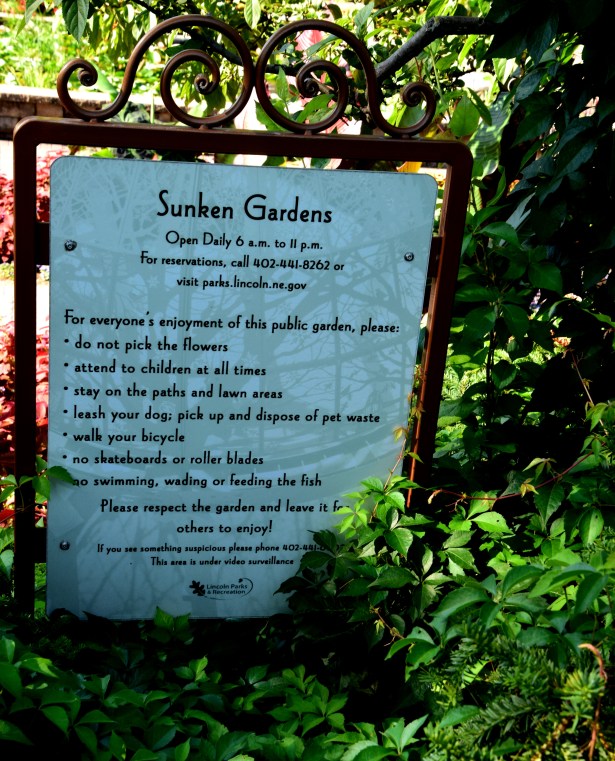 Sunken Gardens
Open Daily 6 a.m. to 11 p.m.
For reservations, call 402-441-8262 or
visit parks.lincoln.ne.gov
For everyone's enjoyment of this public garden, please:
• do not pick the flowers
• attend to children at all times
• stay on the paths and lawn areas
• leash your dog; pick up and dispose of pet waste
• walk your bicycle
• no skateboards or roller blades
no swimming, wading or feeding the fish
Please respect the garden and leave it
others to enjoy!
If you see something suspicious please phone 402-441-
This area is under video surveillance
Lincoln Parks
& Recreation